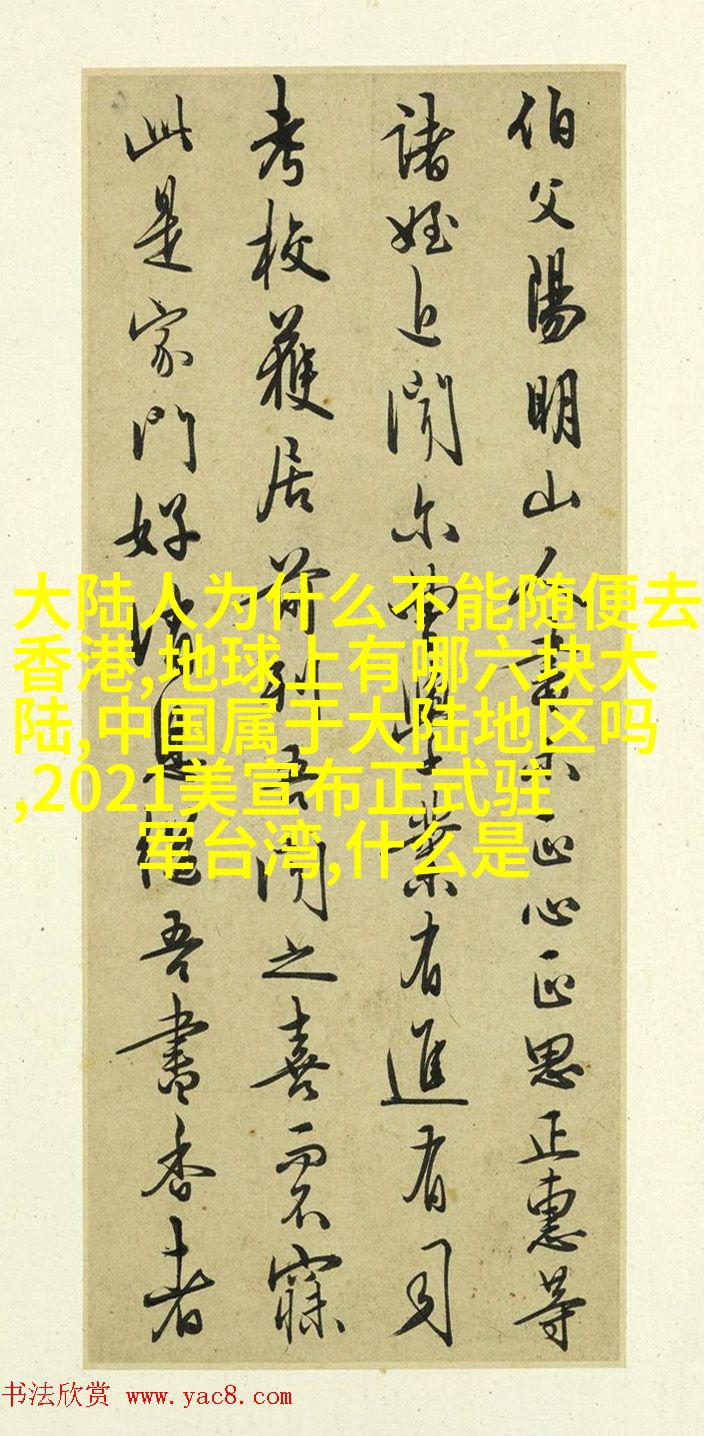 伯父陽明山人書示正心正思正惠等
諸姪近聞尔曹學業有進有司
考校獲居前列吾聞之喜而不寐
此是家門好消息繼吾書香者
大陆人为什么不能随便去
香港,地球上有哪六块大
陆,中国属于大陆地区吗
,2021美宣布正式驻
军台湾,什么是
书法欣赏 www.yac8.com